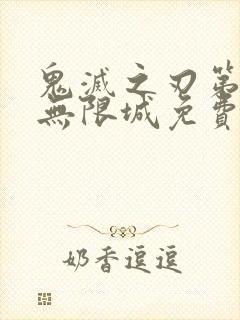 鬼滅之刃第
無限城免費
奶香逗逗